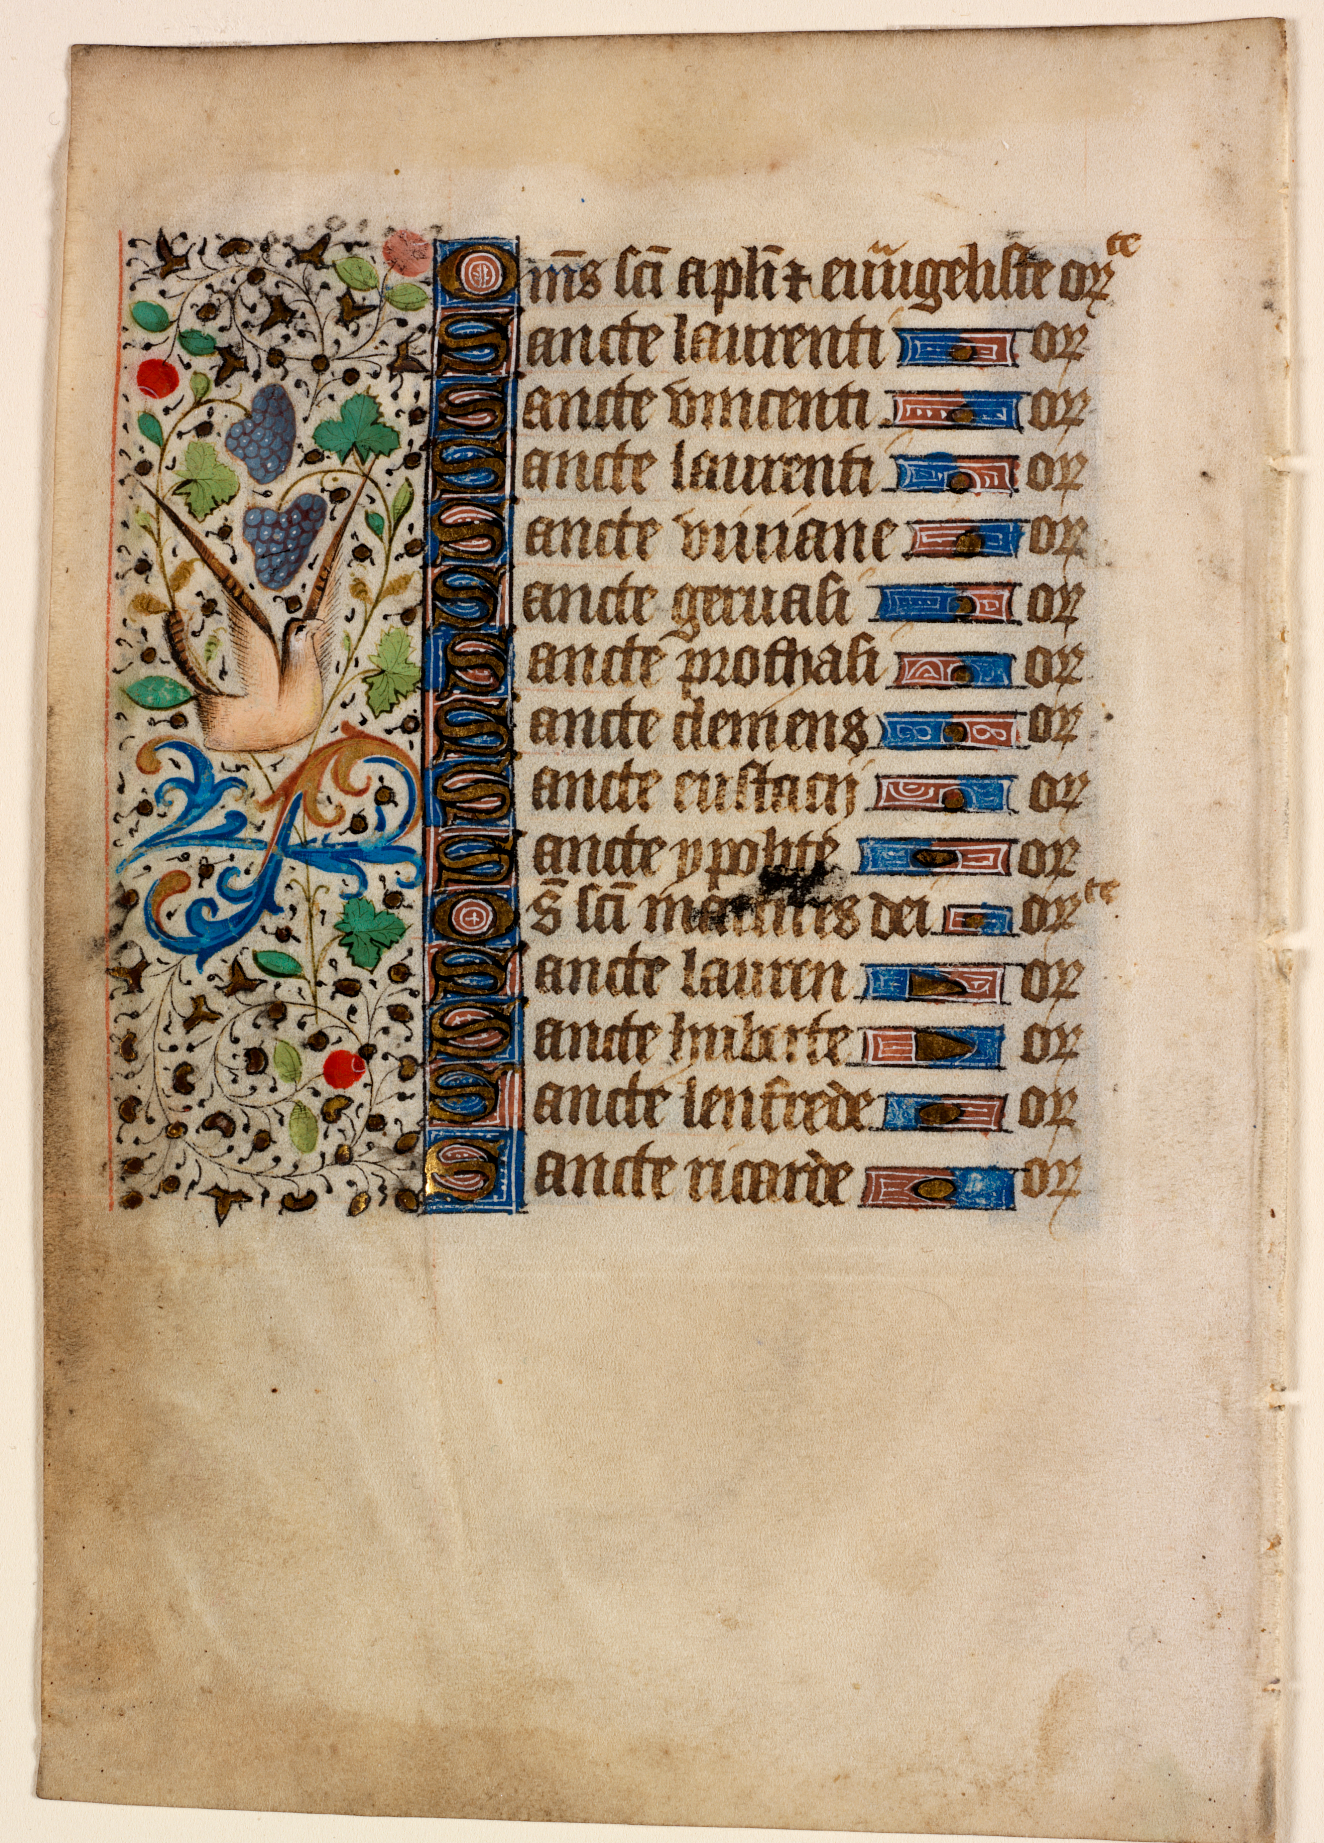 Om̅s sc̅i apl̅i ⁊ eūūgeliste orꝫ te
Sancte laurenti orꝫ
Sancte vincenti orꝫ
Sancte laurenti orꝫ
Sancte viuiane orꝫ
Sancte geruasi orꝫ
Sancte prothasi orꝫ
Sancte clemens orꝫ
Sancte eustacij orꝫ
Sancte ypolite orꝫ
Os̅ sc̅i martires dei orꝫ te
Sancte lauren orꝫ
Sancte huberte orꝫ
Sancte lenfrede orꝫ
Sancte ricarde orꝫ